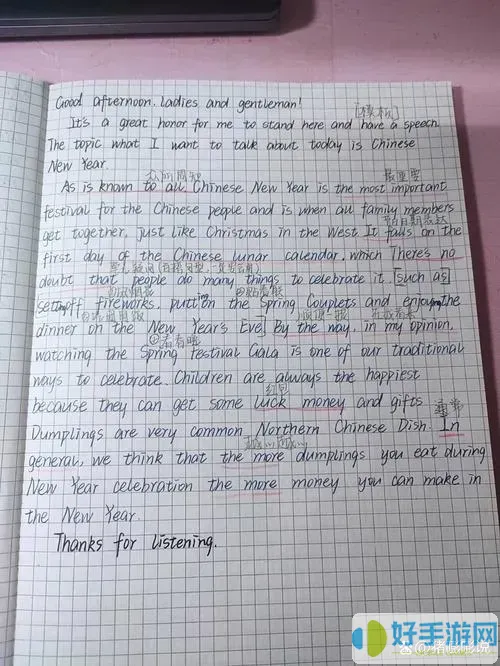 Good afternoon. Ladies and gentleman!
[模板]
It's a great honor for me to stand here and have a speech.
The topic what I want to talk about today is Chinese
New Year.
众所周知
最重要
As is known to all, Chinese New Year is the most important
festival for the Chinese people and is when all family members
节日日期表达
get together, just like Christmas in the West. It falls on the
first day of the Chinese lunar calendar. which There's no
doubt that people do many things to celebrate it. [such as]
set off fireworks, putting the Spring Couplets and enjoying the
dinner on the New Year's Eve] By the way, in my opinion,
watching the Spring Festival Gala is one of our traditional
ways to celebrate. Children are always the happiest
红包
because they can get some luck money and gifts
通常
Dumplings are very common Northern Chinese Dish. In
越...越...
general, we think that the more dumplings you eat during
New Year celebration the more money you can make in
the New Year.
Thanks for listening.
好手游网